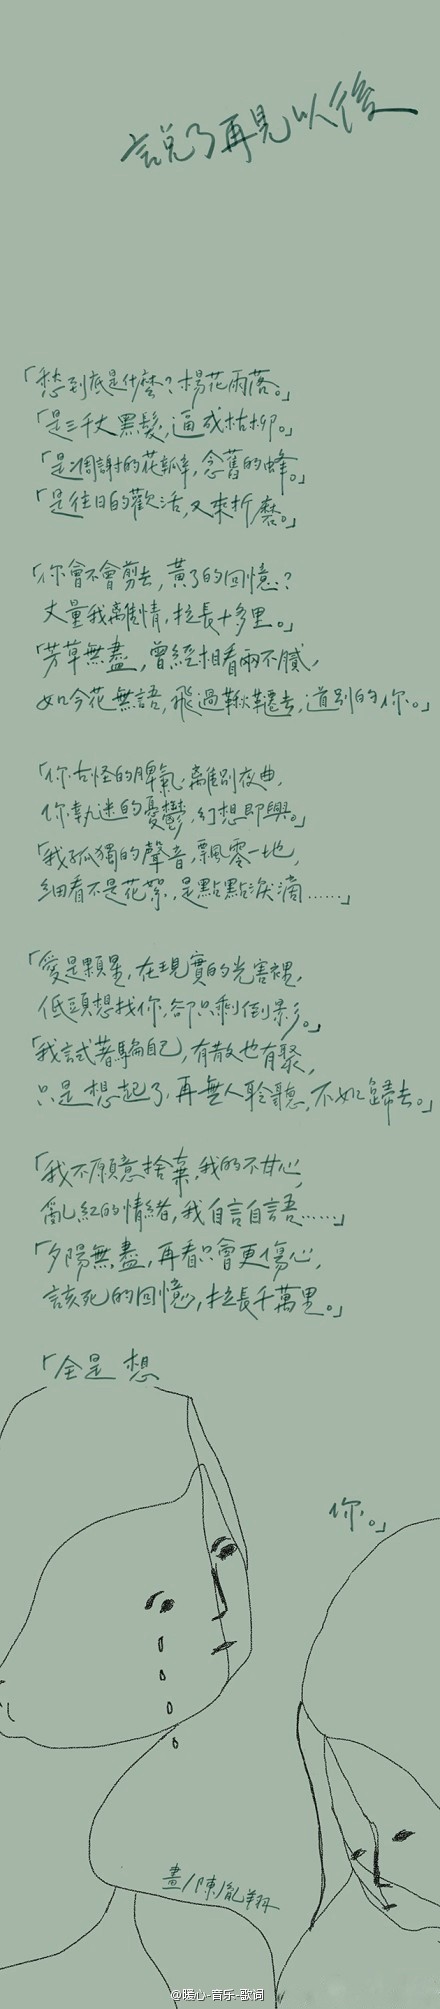 說了再見以後
「想到底是什麼？楊花雨落。」
「是三千丈黑髮，逼成枯柳。」
「是凋謝的花瓣，念舊的蜂。」
「是往日的歡活，又來折磨。」
「你會不會剪去，黃了的回憶？
丈量我離情，拉長十多里。」
「芳草無盡，曾經相看兩不膩，
如今花無語，飛過鞦韆去，道別的你。」
「你古怪的脾氣，離別夜曲，
你執迷的憂鬱，幻想即興。」
「我孤獨的聲音，飄零一地，
細看不是花絮，是點點淚滴……」
「愛是顆星，在現實的光害裡，
低頭想找你，卻只剩倒影。」
「我試著騙自己，有散也有聚，
只是想起了，再無人聆聽，不如歸去。」
「我不願意捨棄，我的不甘心，
亂紅的情緒，我自言自語……」
「夕陽無盡，再看只會更傷心，
該死的回憶，拉長千萬里。」
「全是想
你。」
畫/陳胤翔
@暖心-音乐-歌词